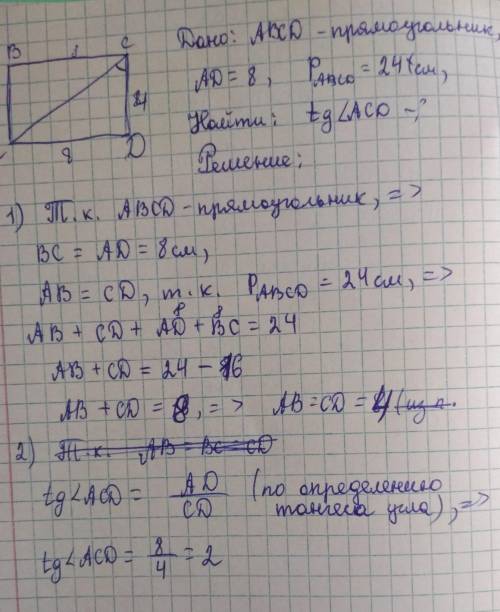 B 8 C
4
8 D
Дано: ABCD - прямоугольник,
AD = 8, P_ABCD = 24 см,
Найти: tg∠ACD - ?
Решение:
1) Т.к. ABCD - прямоугольник, =>
BC = AD = 8 см,
AB = CD, т.к. P_ABCD = 24 см, =>
8 8
AB + CD + AD + BC = 24
AB + CD = 24 - 16
AB + CD = 8, => AB = CD = 4 (из п.
2) Т.к. AB = BC = CD
tg∠ACD = AD/CD (по определению
тангеса угла), =>
tg∠ACD = 8/4 = 2